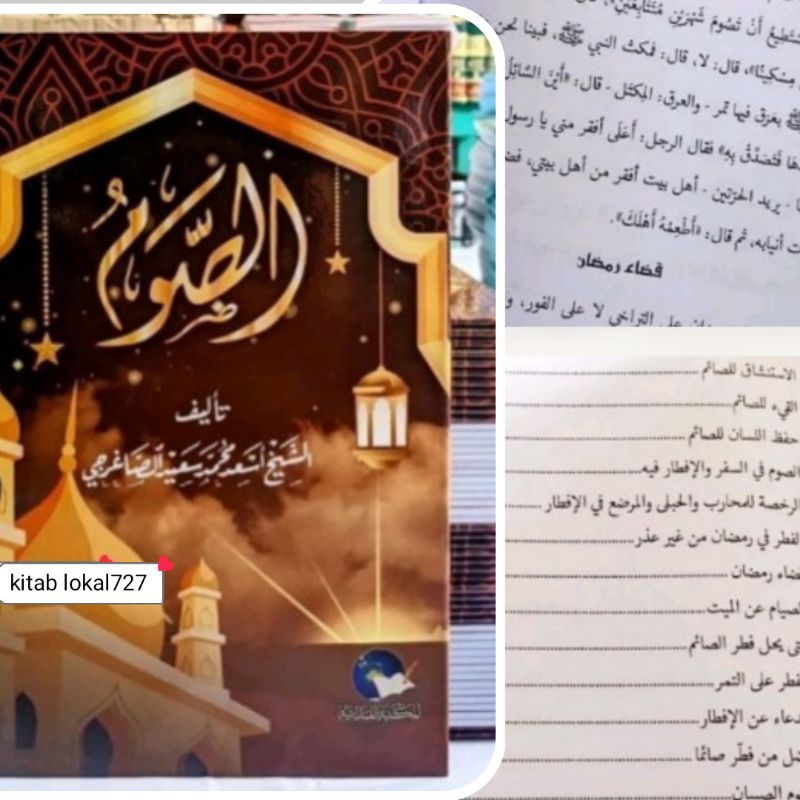 الصَّوْمُ
تأليف
الشَّيْخ أَسْعَد مُحَمَّد سَعِيد الصَّاغَرجي
kitab lokal727
تستطيعُ أنْ تَصُومَ شَهْرَيْنِ مُتَتَابِعَيْنِ»،
مِسْكِينًا»، قال: لا، قال: فمكث النبي ﷺ، فبينا نحن
ﷺ بعَرَق فيها تمر - والعرق: المِكتَل - قال: «أَيْنَ السَّائِلُ
فَتَصَدَّقْ بِهِ» فقال الرجل: أعلى أفقر مني يا رسول
- يريد الحرّتين - أهل بيت أفقر من أهل بيتي،
أنيابه، ثم قال: «أَطْعِمْهُ أَهْلَكَ».
قضاء رمضان
على التراخي لا على الفور،
الاستنشاق للصائم
القيء للصائم
حفظ اللسان للصائم
الصوم في السفر والإفطار فيه
الرخصة للمحارب والحبلى والمرضع في الإفطار
الفطر في رمضان من غير عذر
رمضان
الصيام عن الميت
يحل فطر الصائم
على التمر
عن الإفطار
من فطّر صائمًا
الصبيان